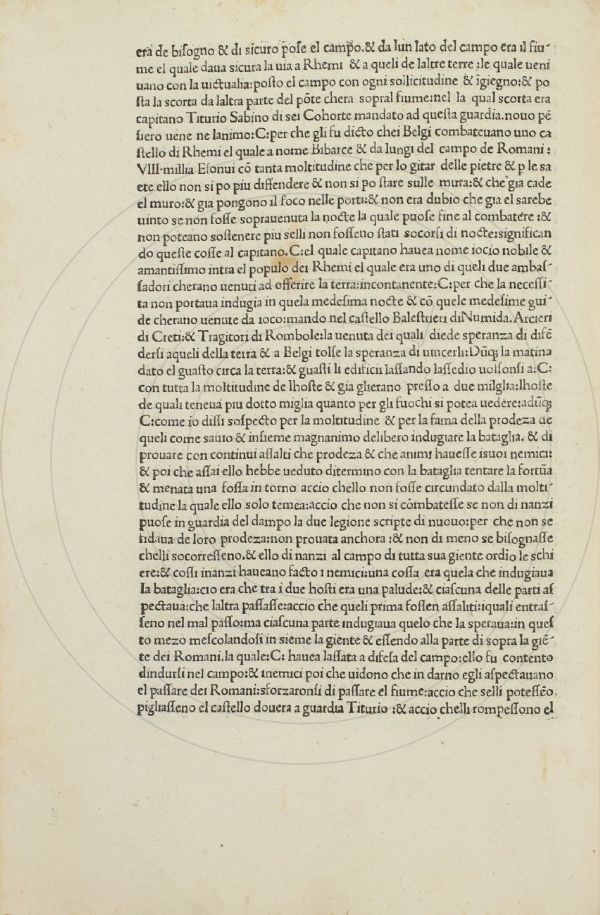 era de biſogno & di sicuro poſe el campo.& da lun lato del campo era il fiu-
me el quale daua sicura la uia a Rhemi & a queli de laltre terre :le quale ueni
uano con la uictualia:poſto el campo con ogni sollicitudine & ĩgiegno:& po
ſta la scorta da laltra parte del põte chera sopral fiume:nel la qual scorta era
capitano Titurio Sabino di sei Cohorte mandato ad queſta guardia.nouo pẽ
ſiero uene ne lanimo:C:per che gli fu dicto chei Belgi combateuano uno ca
ſtello di Rhemi el quale a nome Bibarce & da lungi del campo de Romani :
VIII.millia Eſonui cõ tanta moltitudine che per lo gitar delle pietre & p le sa
ete ello non si po piu diffendere & non si po ſtare sulle mura:& che gia cade
el muro:& gia pongono il foco nelle porti:& non era dubio che gia el sarebe
uinto se non foſſe soprauenuta la nocte la quale puoſe fine al combatere :&
non poteano soſtenere piu selli non foſſeno ſtati socorſi di nocte:significan
do queſte coſſe al capitano.C:el quale capitano hauea nome iocio nobile &
amantiſſimo intra el populo dei Rhemi el quale era uno di queli due ambaſ
ſadori cherano uenuti ad offerire la terra:incontanente:C:per che la neceſſi
ta non portaua indugia in quela medeſima nocte & cõ quele medeſime gui
de cherano uenute da ioco:mando nel caſtello Baleſtrieri diNumida.Arcieri
di Creti:& Tragitori di Rombole:la uenuta dei quali diede speranza di difẽ
derſi aqueli della terra & a Belgi tolſe la speranza di uincerli:Dũq; la matina
dato el guaſto circa la terra:& guaſti li edificii laſſando laſſedio uolſonſi a:C:
con tutta la moltitudine de lhoſte & gia glierano preſſo a due milglia:lhoſte
de quali teneua piu dotto miglia quanto per gli fuochi si potea uedere:adũq;
C:come io diſſi soſpecto per la moltitudine & per la fama della prodeza de
queli come sauio & inſieme magnanimo delibero indugiare la bataglia. & di
prouare con continui aſſalti che prodeza & che animi haueſſe iſuoi nemici:
& poi che aſſai ello hebbe ueduto ditermino con la bataglia tentare la fortũa
& menata una foſſa in torno accio chello non foſſe circundato dalla molti
tudine la quale ello solo temea:accio che non si cõmbateſſe se non di nanzi
puoſe in guardia del dampo la due legione scripte di nuouo:per che non se
fidaua de loro prodeza:non prouata anchora :& non di meno se biſognaſſe
chelli socorreſſeno.& ello di nanzi al campo di tutta sua giente ordio le schi
ere:& coſſi inanzi haueano facto i nemici:una coſſa era quela che indugiaua
la bataglia:cio era che tra i due hoſti era una palude:& ciaſcuna delle parti aſ
pectaua:che laltra paſſaſſe:accio che queli prima foſſen aſſaliti:iquali entraſ-
ſeno nel mal paſſo:ma ciaſcuna parte indugiaua quelo che la speraua:in queſ
to mezo meſcolandoſi in sieme la giente & eſſendo alla parte di sopra la giẽ-
te dei Romani.la quale:C: hauea laſſata a difeſa del campo:ello fu contento
dindurſi nel campo:& inemici poi che uidono che in darno egli aſpectauano
el paſſare dei Romani:sforzaronſi di paſſare el fiume:accio che selli poteſſẽo
pigliaſſeno el caſtello douera a guardia Titurio :& accio chelli rompeſſono el